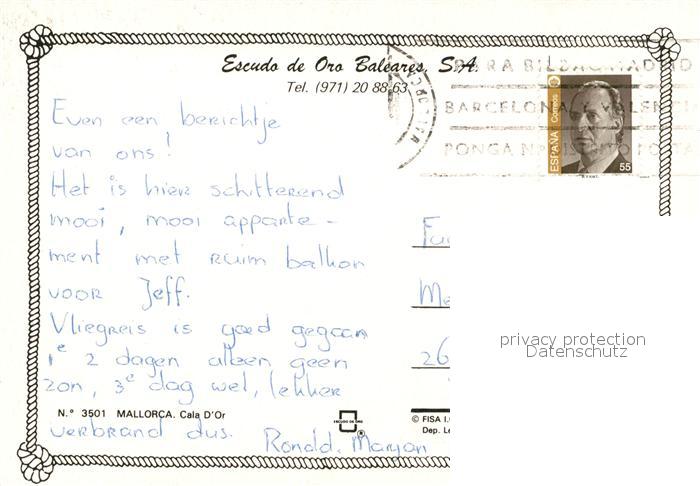 Escudo de Oro Baleares, S.A.
Tel. (971) 20 88 63
BARCELONA Y VALENCI
PONGA
ESPAÑA Correos
55
Even een berichtje
van ons!
Het is hier schitterend
mooi, mooi apparte-
ment met ruim balkon
voor Jeff.
Vliegreis is goed gegaan
1e 2 dagen alleen geen
zon, 3e dag wel, lekker
N.° 3501 MALLORCA. Cala D'Or
ESCUDO DE ORO
verbrand dus. Ronald. Marjan
Fa
Me
26
privacy protection
Datenschutz
© FISA I.
Dep. Le